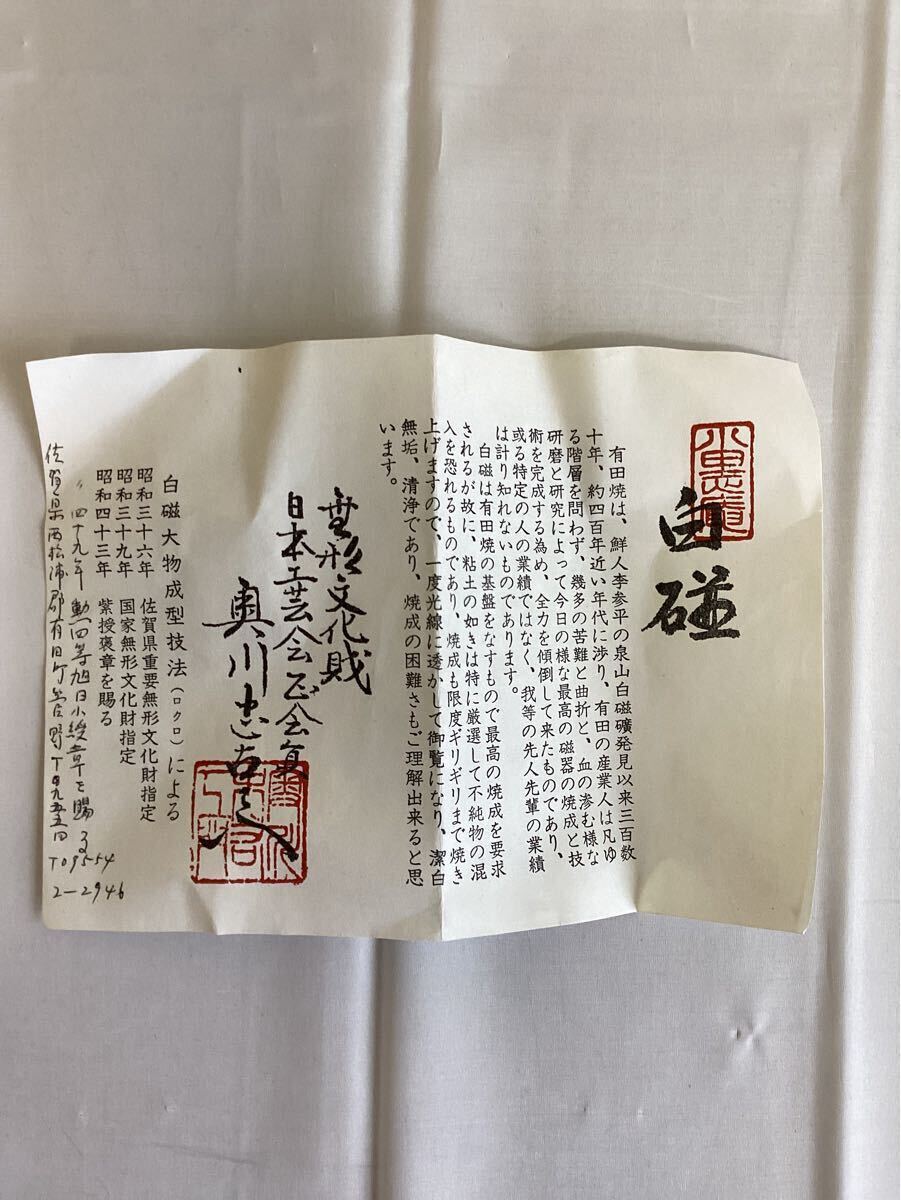 白磁
有田焼は、鮮人李参平の泉山白磁礦発見以来三百数
十年、約四百年近い年代に渉り、有田の産業人は凡ゆ
る階層を問わず、幾多の苦難と曲折と、血の滲む様な
研磨と研究によって今日の様な最高の磁器の焼成と技
術を完成する為め、全力を傾倒して来たものであり、
或る特定の人の業績ではなく、我等の先人先輩の業績
は計り知れないものであります。
白磁は有田焼の基盤をなすもので最高の焼成を要求
されるが故に、粘土の如きは特に厳選して不純物の混
入を恐れるものであり、焼成も限度ギリギリまで焼き
上げますので、一度光線に透かして御覧になり、潔白
無垢、清浄であり、焼成の困難さもご理解出来ると思
います。
無形文化財
日本工芸会正会員
奥川忠右エ門
白磁大物成型技法(ロクロ)による
昭和三十六年 佐賀県重要無形文化財指定
昭和三十九年 国家無形文化財指定
昭和四十三年 紫授褒章を賜る
〃 四十九年 勲四等旭日小綬章を賜る
佐賀県西松浦郡有田町
T09554
2-2946